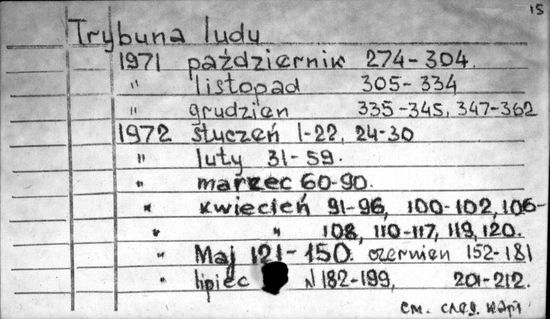 15
Trybuna ludy
1971 październik 274-304.
" listopad 305-334
" grudzien 335-345, 347-362
1972 styczeń 1-22, 24-30
" luty 31-59.
" marzec 60-90.
" kwiecień 91-96, 100-102, 106-
" " 108, 110-117, 119, 120.
" Maj 121-150. czerwien 152-181
" lipiec N 182-199, 201-212.
см. след. карт